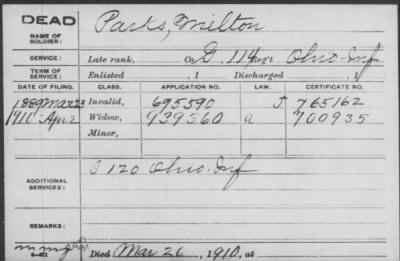 DEAD
NAME OF SOLDIER: Parks, Milton
SERVICE: Late rank, Co. G, 114 Reg't Ohio Inf
TERM OF SERVICE: Enlisted , 1 Discharged , 1
DATE OF FILING. CLASS. APPLICATION NO. LAW. CERTIFICATE NO.
1889 Mar 23 Invalid, 695590 J 765162
1910 Apr 2 Widow, 939360 a 700935
Minor,
ADDITIONAL SERVICES: I 120 Ohio Inf
REMARKS:
Died Mar 26, 1910, at